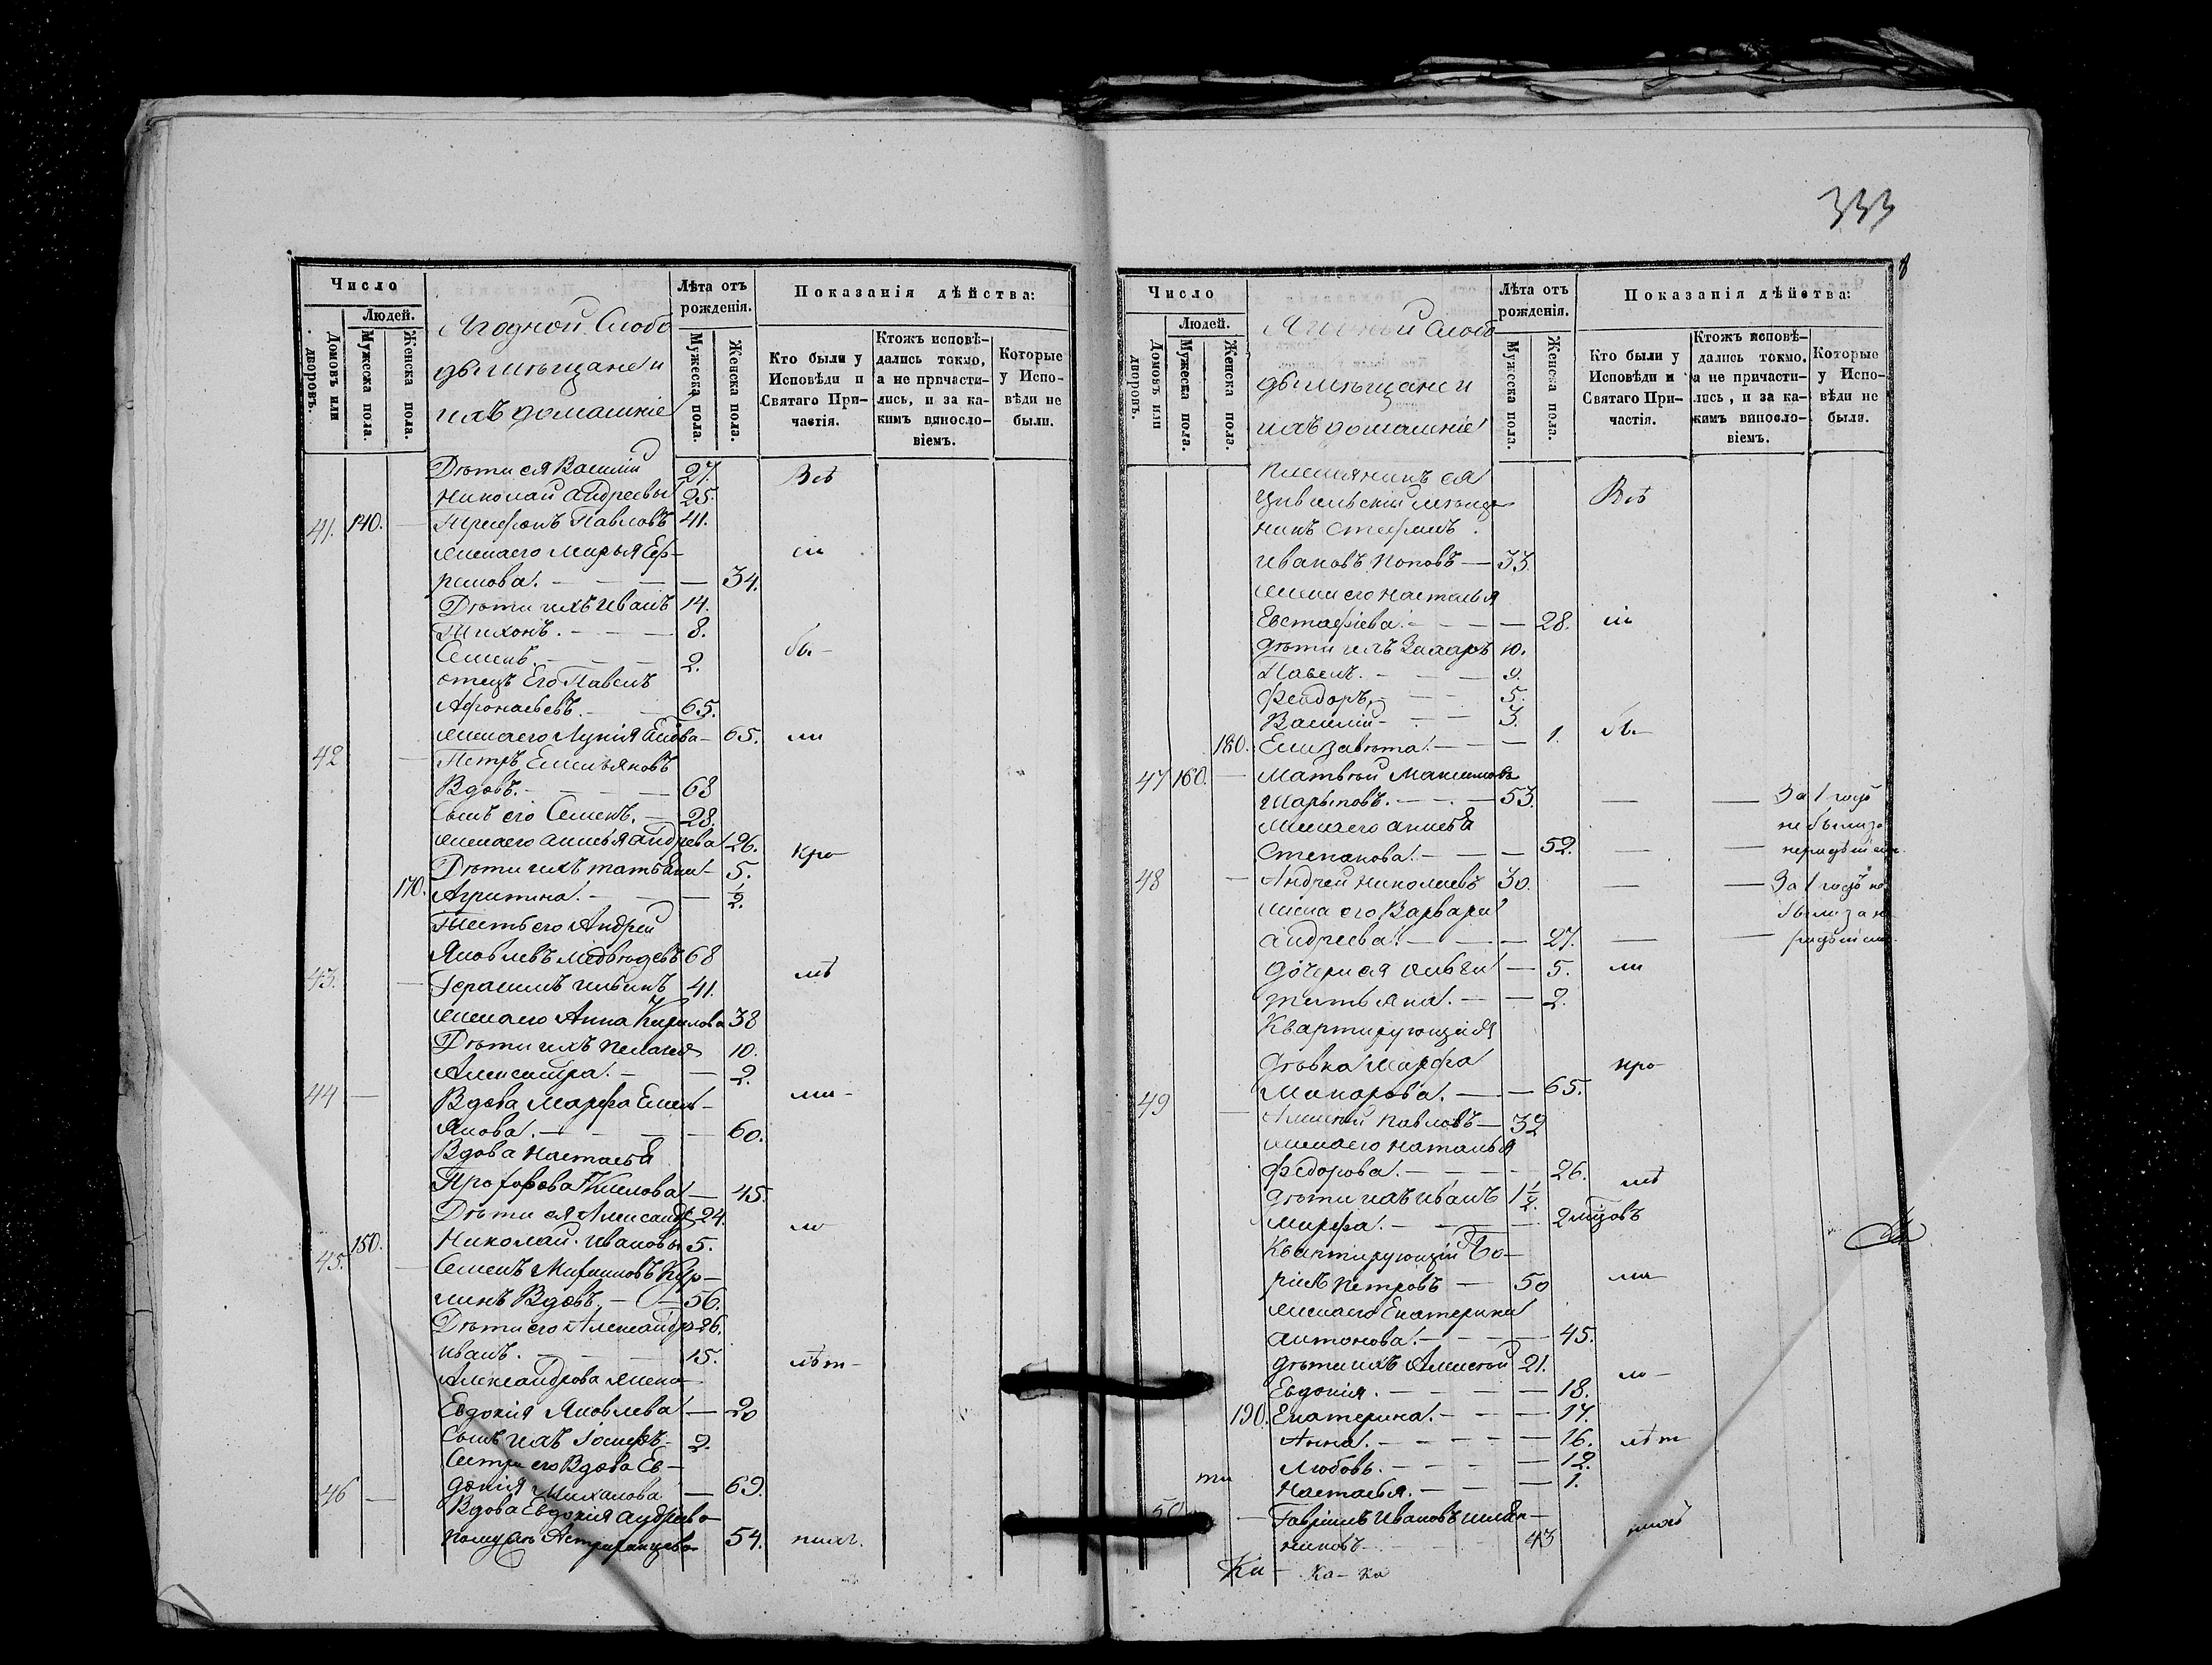 333
8
Число
Людей.
Домовъ или дворовъ.
Мужеска пола.
Женска пола.
Ягодной Слобо
ды мѣщане и
ихъ домашніе
Лѣта отъ рожденія.
Мужеска пола.
Женска пола.
Показанія дѣйства:
Кто были у Исповѣди и Святаго Причастія.
Ктожъ исповѣдались токмо, а не причастились, и за какимъ винословіемъ.
Которые у Исповѣди не были.
Дѣти ея Василій 27. Всѣ
Николай Андреевы 25.
41. 140. — Трифонъ Павловъ 41.
жена его Марья Еф-
ремова. — — 34.
Дѣти ихъ Иванъ 14.
Тихонъ. — — 8.
Семенъ. — — 2. бы-
отецъ Его Павелъ
Афонасьевъ. — 65.
жена его Лукія — 65. ли
42 — Петръ Емельяновъ
Вдовъ. — — 68
Сынъ его Семенъ. — 28.
жена его Анисья Андреева 26.
Дѣти ихъ Татьяна — 5.
170. Агрипина. — — ½.
Тесть его Андрей
Яковлевъ Медвѣдевъ 68
43. — Герасимъ Ильинъ 41.
жена его Анна Кирилова 38
Дѣти ихъ Пелагея 10.
Александра. — — 2.
44 — Вдова Марфа Емель-
янова. — — 60.
Вдова Настасья
Прохорова Климова — 45.
Дѣти ея Александръ 24.
150. Николай Ивановы 5.
45. — Семенъ
линъ Вдовъ. — 56.
Дѣти его Александръ 26.
Иванъ. — — 15.
Александрова жена
Евдокія Яковлева — 20
Сынъ ихъ Іосифъ. 2.
Сестра его Вдова Ев-
докія — 69.
46 — Вдова Евдокія Андреева
54.
Число
Людей.
Домовъ или дворовъ.
Мужеска пола.
Женска пола.
Ягодной Слобо
ды мѣщане и
ихъ домашніе
Лѣта отъ рожденія.
Мужеска пола.
Женска пола.
Показанія дѣйства:
Кто были у Исповѣди и Святаго Причастія.
Ктожъ исповѣдались токмо, а не причастились, и за какимъ винословіемъ.
Которые у Исповѣди не были.
Племянникъ ея
Цивильскій мѣща- Всѣ
нинъ Стефанъ
Ивановъ Поповъ — 33.
жена его Настасья
Евстафіева. — — 28.
Дѣти ихъ Захаръ 10.
Павелъ. — — 9.
Феодоръ. — — 5.
Василій — — 3.
180. Елизавета. — — 1. бы-
47 160. — Матвѣй Максимовъ
Шарыповъ. — — 53. — — За 1 годъ
жена его Анисья не были за
Степанова. — — 52. — — нерадѣніемъ
48 — Андрей Николаевъ 30. — — За 1 годъ не
жена его Варвара были за не
Андреева. — — 27. — — радѣніемъ
дочери ея Ольга — 5. ли
Татьяна. — — 2.
Квартирующая
дѣвка Марфа
Макарова. — — 65.
49 — Алексѣй Павловъ — 32
жена его Наталья
Федорова. — — 26.
дѣти ихъ Иванъ 1½.
Марфа. — — 2 мѣсяцовъ
Квартирующій Бо-
рисъ Петровъ — 50
жена его Екатерина
Антонова. — — 45.
дѣти ихъ Алексѣй 21.
Евдокія. — — 18.
190. Екатерина. — — 17.
Анна. — — 16. лѣт
Любовь. — — 12.
Настасья. — — 1.
50 — Гавріилъ Ивановъ
никовъ — 43
Ка- ка- ка